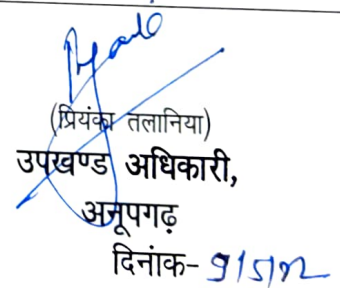 (प्रियंका तलानिया)
उपखण्ड अधिकारी,
अनूपगढ़
दिनांक-